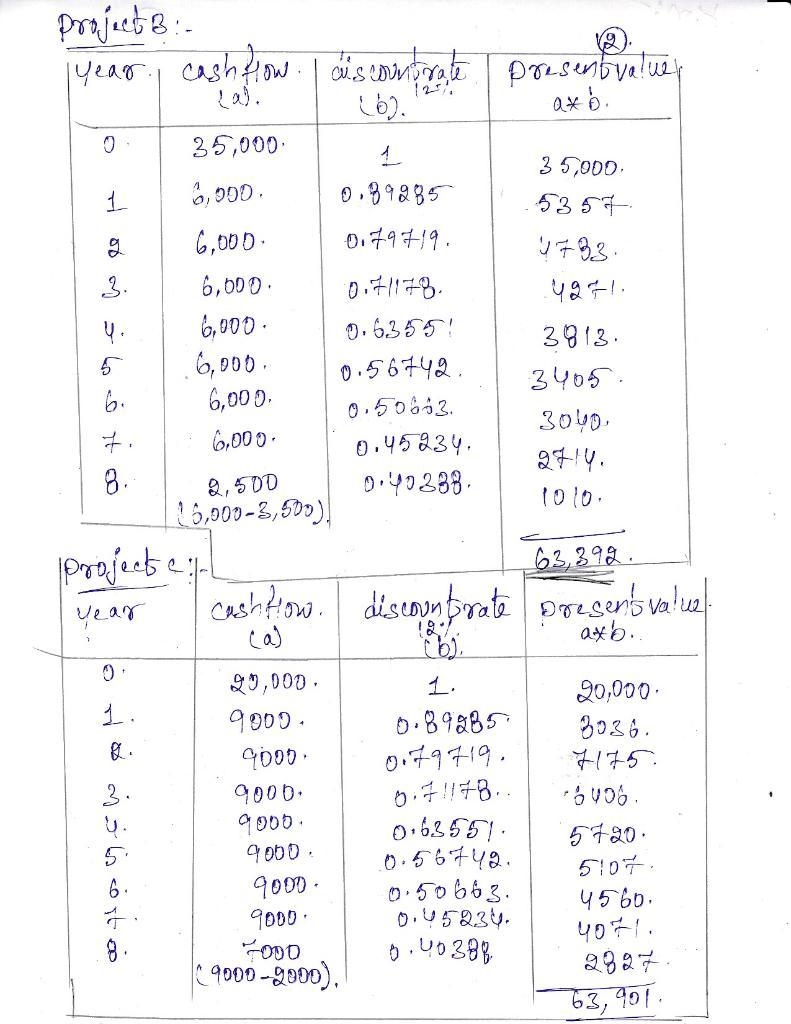 Project B :-
(2).
year. cash flow. discount rate present value
(a). 12%. (b). a*b.
0. 35,000. 1 35,000.
1 6,000. 0.89285 5357
2 6,000. 0.79719. 4783.
3. 6,000. 0.71178. 4271.
4. 6,000. 0.63551 3813.
5 6,000. 0.56742. 3405.
6. 6,000. 0.50663. 3040.
7. 6,000. 0.45234. 2714.
8. 2,500 0.40388. 1010.
(6,000-3,500).
63,392.
Project C :-
year cash flow. discount rate present value.
(a) 12%. (b). a*b.
0. 20,000. 1. 20,000.
1. 9000. 0.89285 8036.
2. 9000. 0.79719. 7175.
3. 9000. 0.71178. 6406.
4. 9000. 0.63551. 5720.
5. 9000. 0.56742. 5107.
6. 9000. 0.50663. 4560.
7. 9000. 0.45234. 4071.
8. 7000 0.40388 2827.
(9000-2000).
63,901.